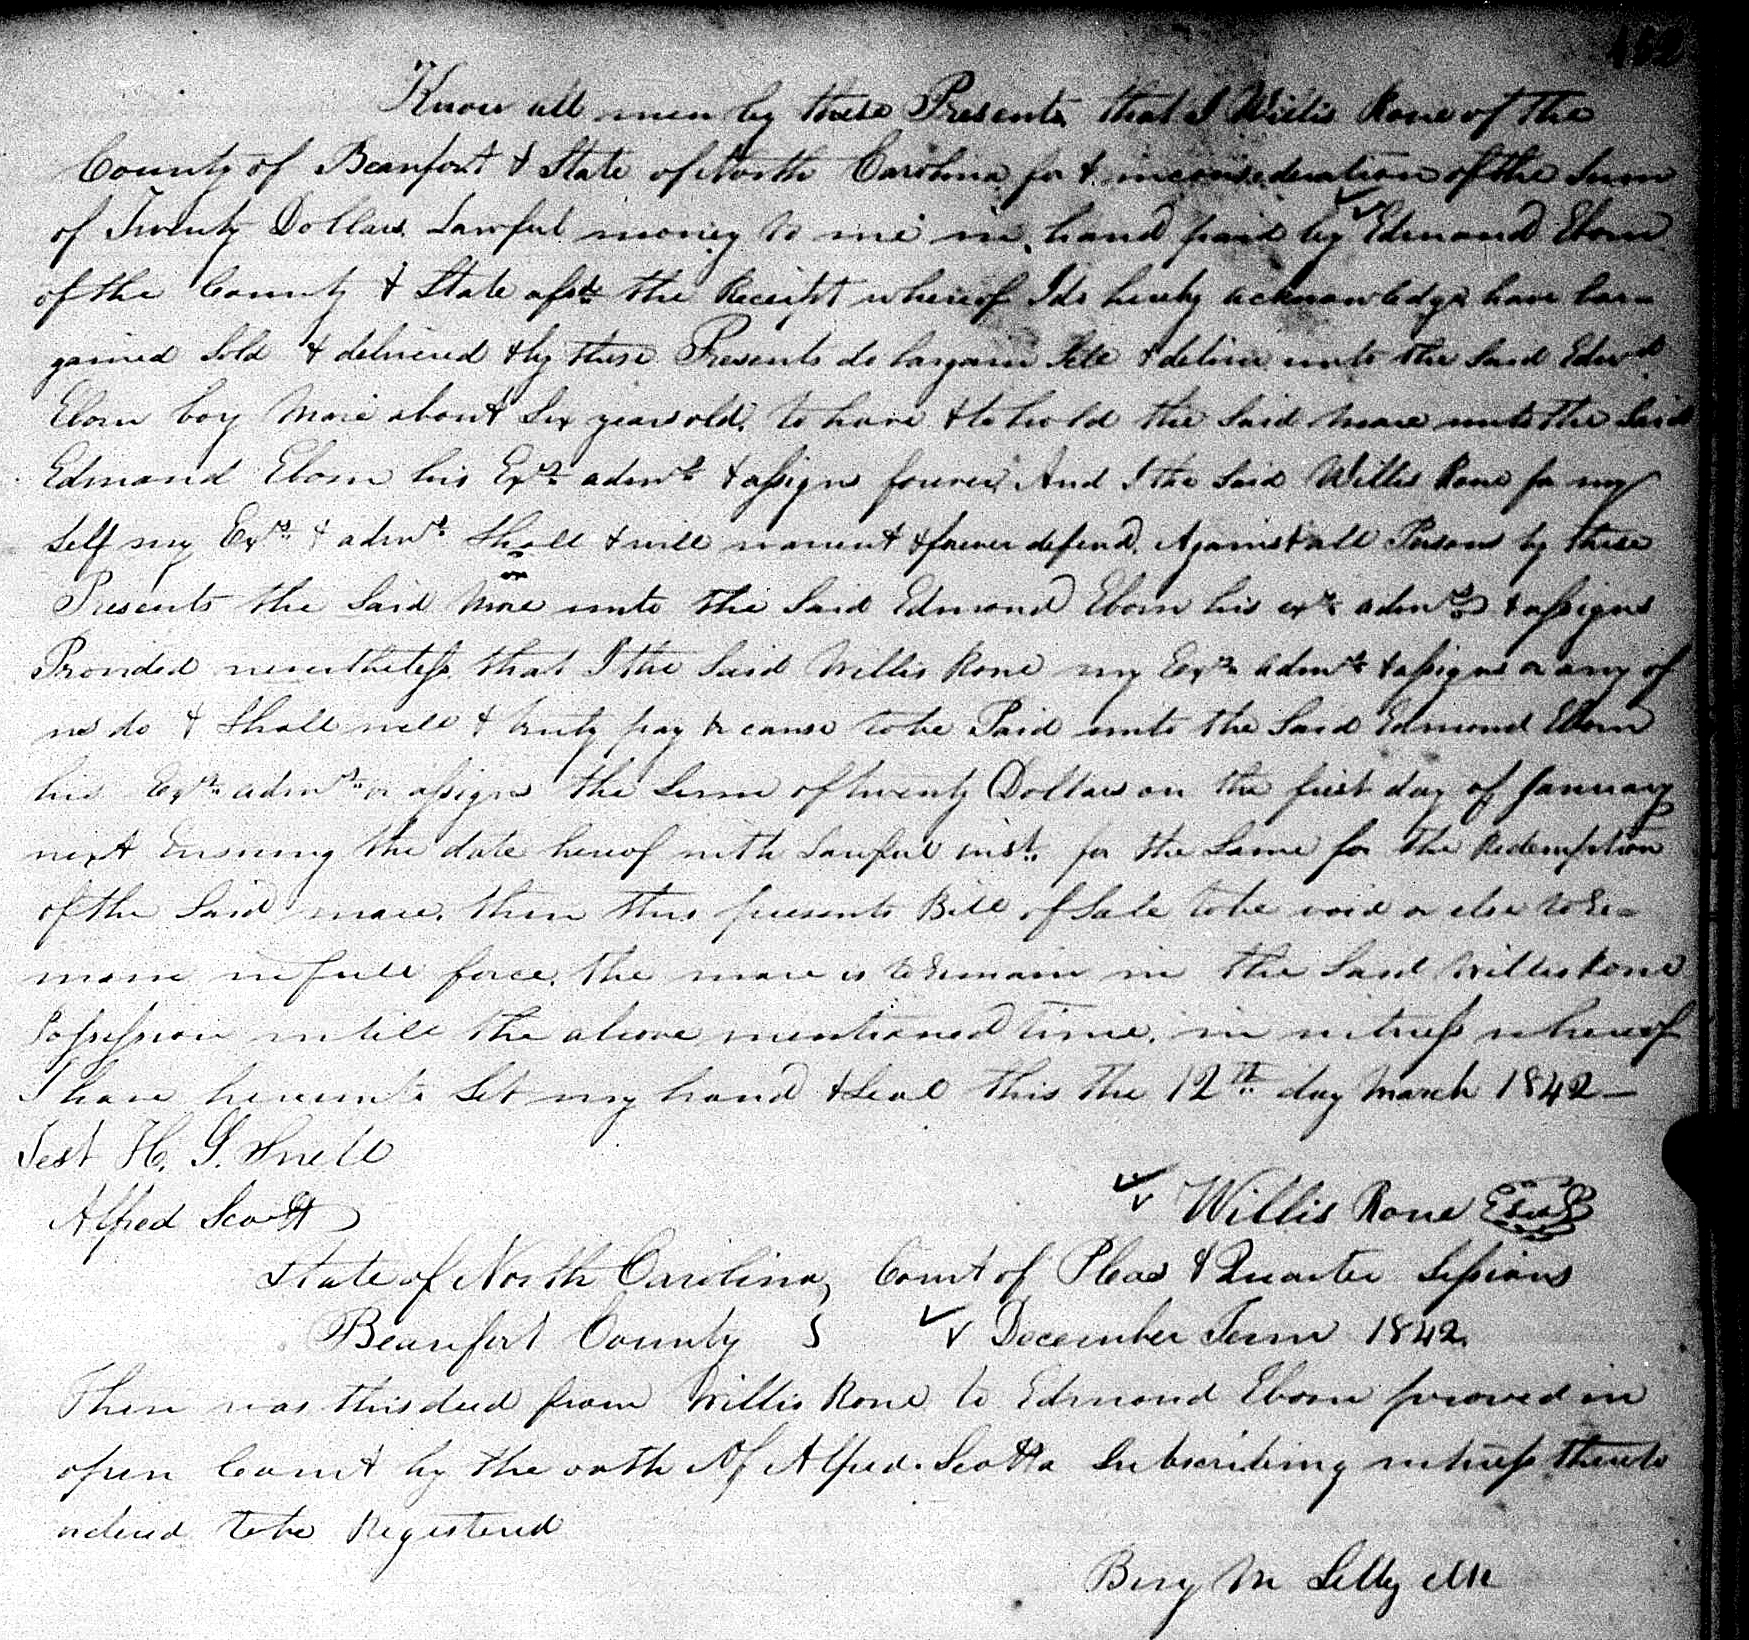 Know all men by these Presents that I Willis Rone of the
County of Beaufort & State of North Carolina for & inconsideration of the Sum
of Twenty Dollars Lawful money to me in hand paid by Edmond Eborn
of the County & State afsd the Receipt whereof I do hereby acknowledge have bar=
gained Sold & delivered & by these Presents do bargain Sell & deliver unto the Said Edmd
Eborn bay Mare about Six years old, to have & to hold the Said Mare unto the Said
Edmond Eborn his Exrs admrs & assigns forever And I the Said Willis Rone for my
Self my Exrs & admrs Shall & will warrent & forever defend Against all Persons by these
Presents the Said Mare unto the Said Edmond Eborn his exrs admrs & assigns
Provided nevertheless that I the Said Willis Rone my Exrs admrs & assigns or any of
us do & Shall well & truly pay or cause to be Paid unto the Said Edmond Eborn
his Exrs admrs or assigns the Sum of twenty Dollars on the first day of January
next Ensuing the date hereof with Lawful inst. for the Same for the Redemption
of the Said mare, then this presents Bill of Sale to be void or else to Re=
main in full force, the mare is to remain in the Said Willis Rone
Possession untill the above mentioned time, in witness whereof
I have hereunto Set my hand & Seal this the 12th day March 1842 —
Test H. G. Snell
Willis Rone Seal
Alfred Scott
State of North Carolina } Court of Pleas & Quarter Sessions
Beaufort County } December Term 1842
Then was this deed from Willis Rone to Edmond Eborn proved in
open Court by the oath of Alfred Scott a Subscribing witness thereto
ordered to be Registered
Benj M Selby Clk